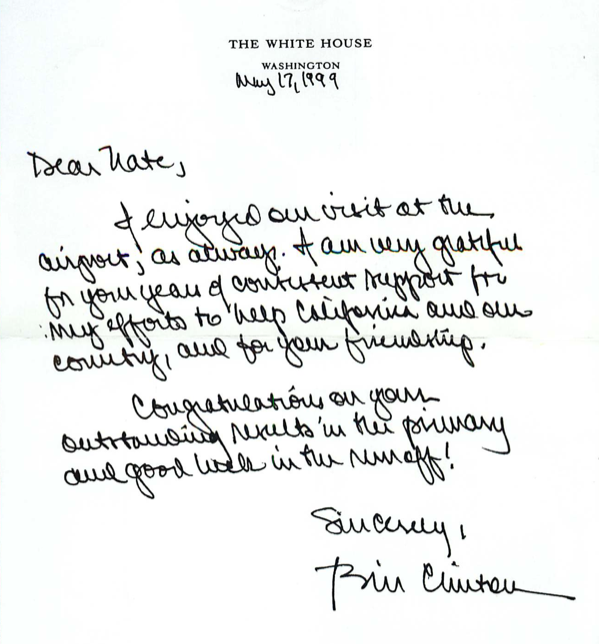 THE WHITE HOUSE
WASHINGTON
May 17, 1999
Dear Nate,
I enjoyed our visit at the
airport, as always. I am very grateful
for your years of consistent support for
my efforts to help California and our
country, and for your friendship.
Congratulations on your
outstanding results in the primary
and good luck in the runoff!
Sincerely,
Bill Clinton